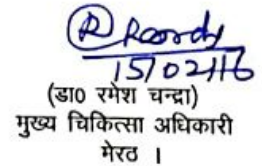 15/02/16
(डा० रमेश चन्द्रा)
मुख्य चिकित्सा अधिकारी
मेरठ ।